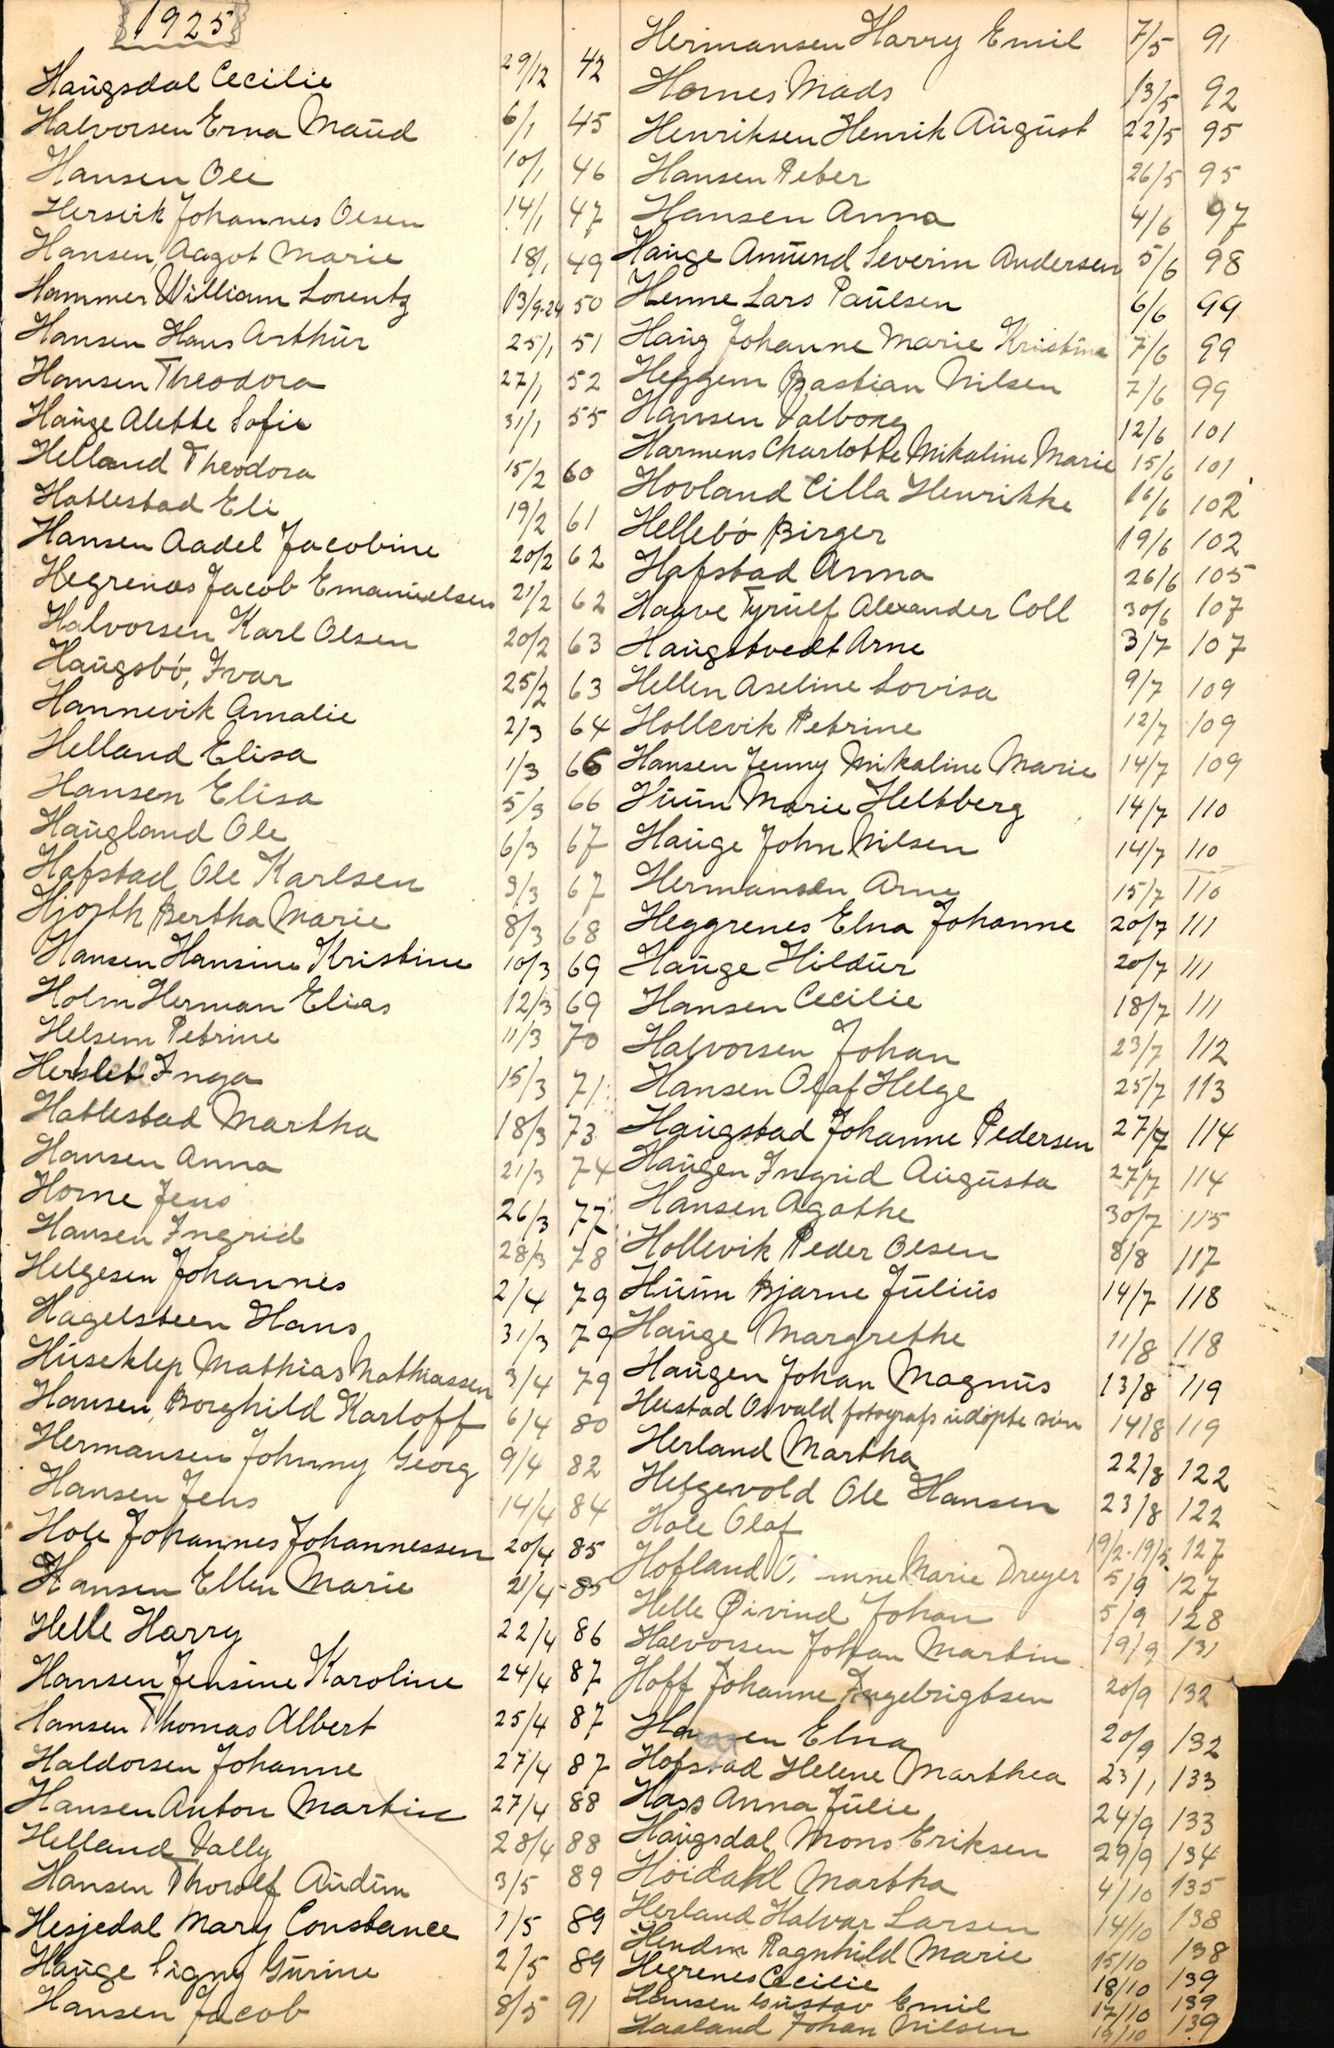 1925
Haugsdal Cecilie 29/12 42
Halvorsen Erna Maud 6/1 45
Hansen Ole 10/1 46
Hersirk Johannes Olsen 14/1 47
Hansen, Aagot Marie 18/1 49
Hammer William Lorentz 13/9-24 50
Hansen Hans Arthur 25/1 51
Hansen Theodora 27/1 52
Hauge Alette Sofie 31/1 55
Helland Theodora 15/2 60
Hatlestad Eli 19/2 61
Hansen Aadel Jacobine 20/2 62
Hegrenæs Jacob Emanuelsen 21/2 62
Halvorsen Karl Olsen 20/2 63
Haugsbö, Ivar 25/2 63
Hannevik Amalie 2/3 64
Helland Elisa 1/3 66
Hansen Elisa 5/3 66
Haugland Ole 6/3 67
Hafstad Ole Karlsen 9/3 67
Hjorth Bertha Marie 8/3 68
Hansen Hansine Kristine 10/3 69
Holm Herman Elias 12/3 69
Helsem Petrine 11/3 70
Herslet Inga 15/3 71
Hatlestad Martha 18/3 73
Hansen Anna 21/3 74
Horne Jens 26/3 77
Hansen Ingrid 28/3 78
Helgesen Johannes 2/4 79
Hagelsteen Hans 31/3 79
Huseklep Mathias Mathiassen 3/4 79
Hansen, Borghild Karloff 6/4 80
Hermansen Johnny Georg 9/4 82
Hansen Jens 14/4 84
Hole Johannes Johannessen 20/4 85
Hansen Ellen Marie 21/4 85
Helle Harry 22/4 86
Hansen Jensine Karoline 24/4 87
Hansen Thomas Albert 25/4 87
Haldorsen Johanne 27/4 87
Hansen Anton Martin 27/4 88
Helland Vally 28/4 88
Hansen Thoralf Audun 3/5 89
Hesjedal Mary Constance 1/5 89
Hauge Signy Gurine 2/5 89
Hansen Jacob 8/5 91
Hermansen Harry Emil 7/5 91
Hornes Mads 13/5 92
Henriksen Henrik August 22/5 95
Hansen Peter 26/5 95
Hansen Anna 4/6 97
Hauge Amund Severin Andersen 5/6 98
Henne Lars Paulsen 6/6 99
Haug Johanne Marie Kristine 7/6 99
Heggem Bastian Nilsen 7/6 99
Hansen Valborg 12/6 101
Harmens Charlotte Mikaline Marie 15/6 101
Hovland Cilla Henrikke 16/6 102
Hellebö Birger 19/6 102
Hafstad Anna 26/6 105
Haave Tyrulf Alexander Coll 30/6 107
Haugstvedt Arne 3/7 107
Hellen Aseline Lovisa 9/7 109
Hollevik Petrine 12/7 109
Hansen Jenny Mikaline Marie 14/7 109
Huun Marie Heltberg 14/7 110
Hauge John Nilsen 14/7 110
Hermansen Arne 15/7 110
Heggrenes Elna Johanne 20/7 111
Hauge Hildur 20/7 111
Hansen Cecilie 18/7 111
Halvorsen Johan 23/7 112
Hansen Olaf Helge 25/7 113
Haugstad Johanne Pedersen 27/7 114
Haugen Ingrid Augusta 27/7 114
Hansen Agathe 30/7 115
Hollevik Peder Olsen 8/8 117
Huun Bjarne Julius 14/7 118
Hauge Margrethe 11/8 118
Haugen Johan Magnus 13/8 119
Hustad Osvald fotografs udöpte sön 14/8 119
Herland Martha 22/8 122
Helgevold Ole Hansen 23/8 122
Hole Olaf 19/2-19/5 127
Hofland Marie Dreyer 5/9 127
Helle Øivind Johan 5/9 128
Halvorsen Johan Martin 19/9 131
Hoff Johanne Ingebrigtsen 20/9 132
Hansen Elna 20/9 132
Hofstad Helene Marthea 23/1 133
Hass Anna Julie 24/9 133
Haugsdal Mons Eriksen 29/9 134
Høidahl Martha 4/10 135
Herland Halvar Larsen 14/10 138
Ragnhild Marie 15/10 138
Hegrenes Cecilie 18/10 139
Hansen Gustav Emil 17/10 139
Haaland Johan Nilsen 19/10 139